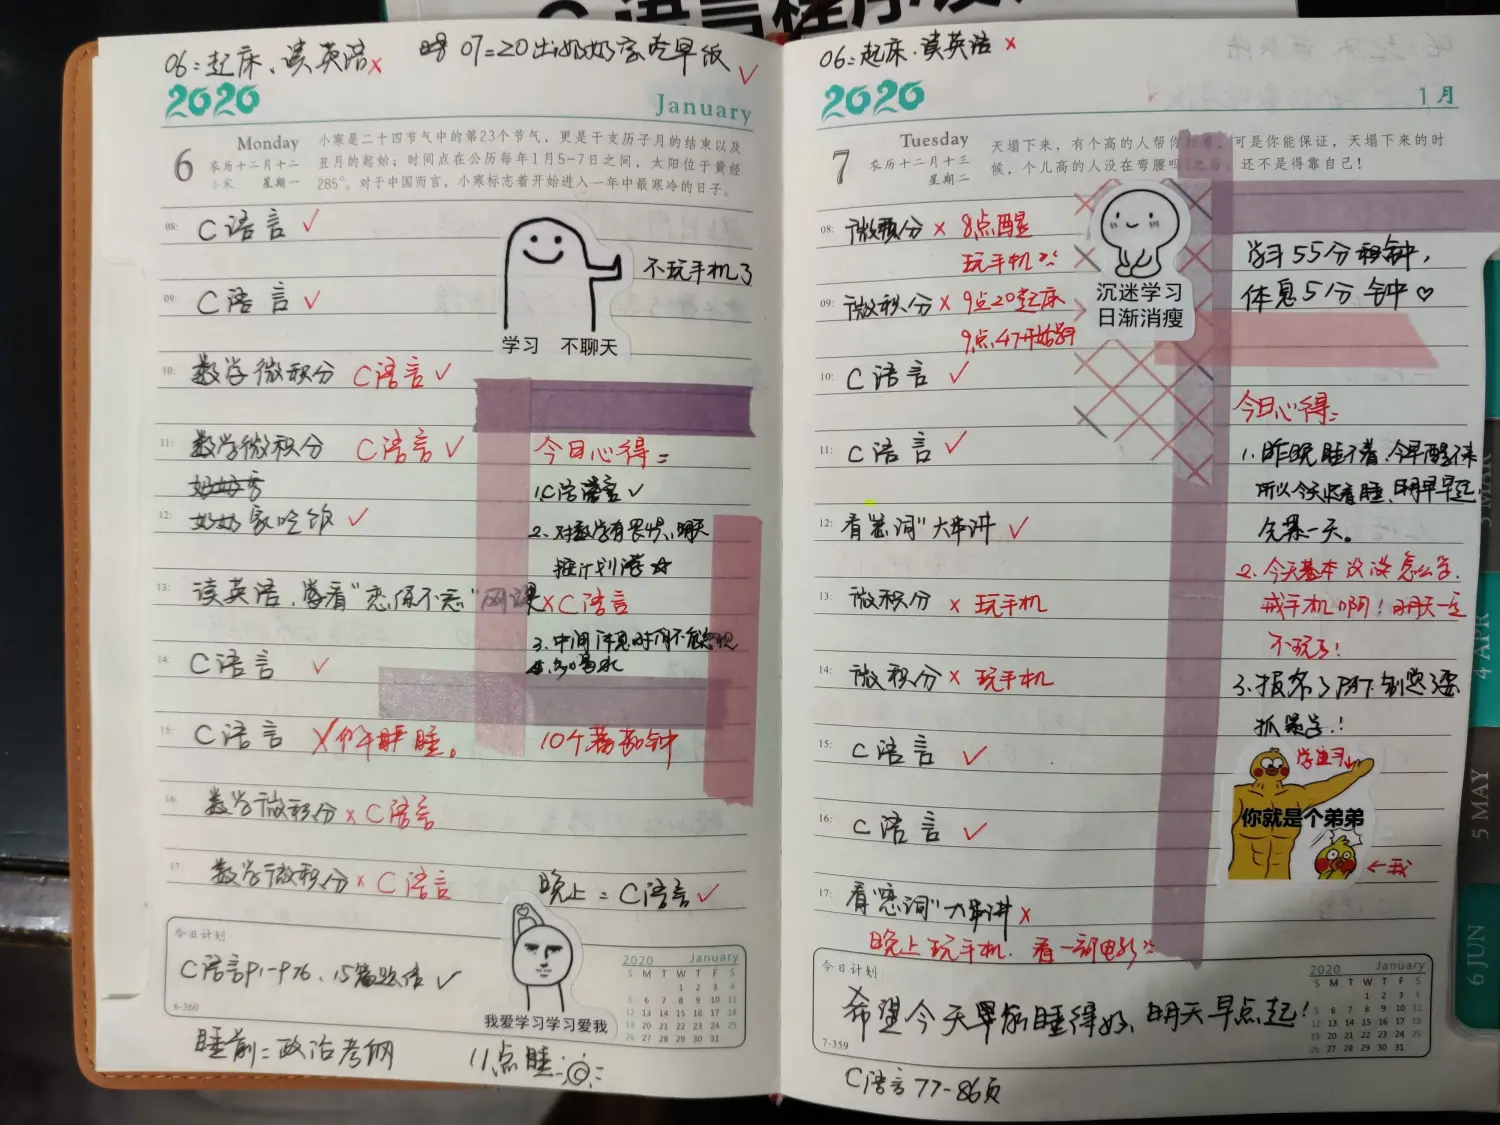 C语言程序设
06:起床、读英语×
07:20出奶奶家吃早饭 ✓
2020
January
6
Monday
农历十二月十二
小寒 星期一
小寒是二十四节气中的第23个节气,更是干支历子月的结束以及
丑月的起始;时间点在公历每年1月5-7日之间,太阳位于黄经
285°。对于中国而言,小寒标志着开始进入一年中最寒冷的日子。
08: C语言 ✓
不玩手机了
09: C语言 ✓
学习 不聊天
10: 数学微积分 C语言 ✓
11: 数学微积分 C语言 ✓
今日心得:
1.C语言 ✓
12: 奶奶家吃饭 ✓
2、对数学有畏惧,明天
按计划学☆
13: 读英语、看“恋 不忘”网课×C语言
3、中间休息时间不能忽视
4、多喝水
14: C语言 ✓
15: C语言 ×午睡。 10个 钟
16: 数学微积分×C语言
17: 数学微积分×C语言
晚上:C语言 ✓
今日计划:
C语言P1-P76、15篇 ✓
6-360
我爱学习学习爱我
2020 January
S M T W T F S
1 2 3 4
5 6 7 8 9 10 11
12 13 14 15 16 17 18
19 20 21 22 23 24 25
26 27 28 29 30 31
睡前:政治考纲
11点睡
06:起床.读英语 ×
2020
1月
7
Tuesday
农历十二月十三
星期二
天塌下来,有个高的人帮你扛着,可是你能保证,天塌下来的时
候,个儿高的人没在弯腰吗?之后,还不是得靠自己!
08: 微积分 × 8点醒
玩手机
学习55分钟,
体息5分钟♡
09: 微积分 × 9点20起床
9点47开始学习
沉迷学习
日渐消瘦
10: C语言 ✓
今日心得:
11: C语言 ✓
1.昨晚睡不着,今早醒不来
所以今天 睡,明早早起,
12: 看“恋词”大串讲 ✓
先第一天。
2、今天基本没怎么学.
13: 微积分 × 玩手机
戒手机啊!明天一定
不玩了!
14: 微积分 × 玩手机
3、报名了 要
抓紧学!
15: C语言 ✓
学习
你就是个弟弟
16: C语言 ✓
←我
17: 看“恋词”大串讲 ×
晚上玩手机.看一部电影
今日计划:
希望今天早点睡得好、明天早点起!
7-359
2020 January
S M T W T F S
1 2 3 4
5 6 7 8 9 10 11
12 13 14 15 16 17 18
19 20 21 22 23 24 25
26 27 28 29 30 31
C语言77-86页
3 MAR
4 APR
5 MAY
6 JUN